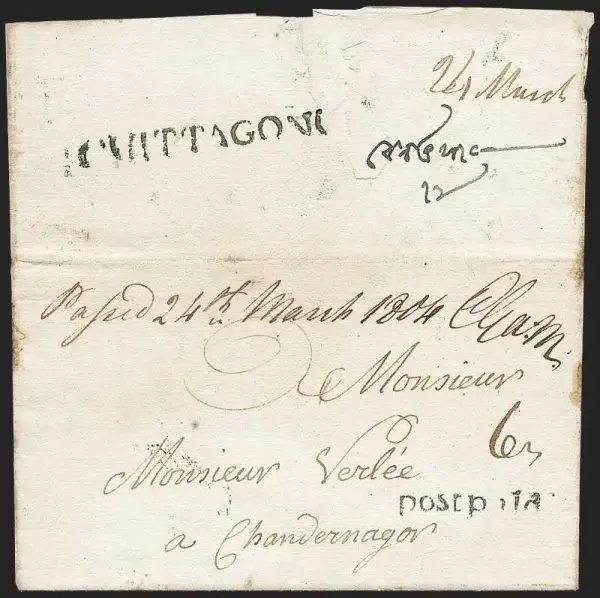 24 March
CHITTAGONG
Passed 24th March 1804
Monsieur
Monsieur Verlée
post paid
a Chandernagor